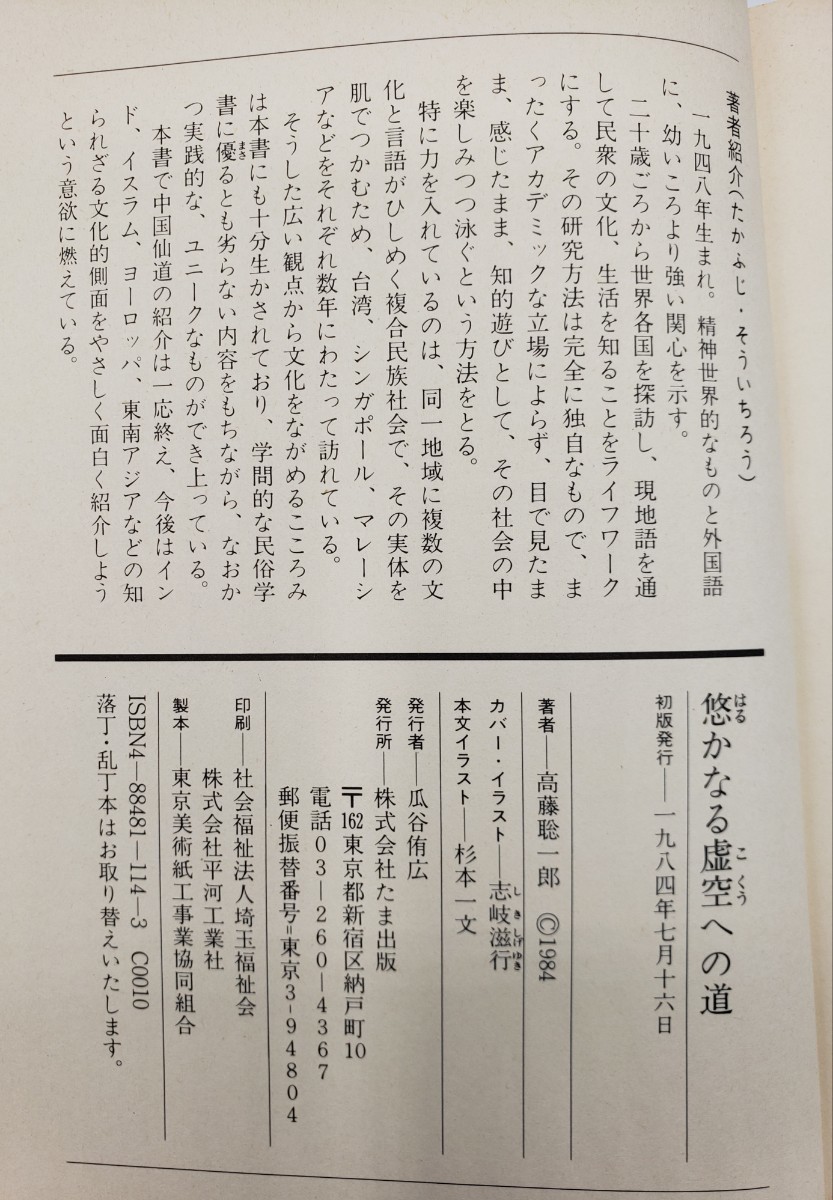 著者紹介(たかふじ・そういちろう)
一九四八年生まれ。精神世界的なものと外国語
に、幼いころより強い関心を示す。
二十歳ごろから世界各国を探訪し、現地語を通
して民衆の文化、生活を知ることをライフワーク
にする。その研究方法は完全に独自なもので、ま
ったくアカデミックな立場によらず、目で見たま
ま、感じたまま、知的遊びとして、その社会の中
を楽しみつつ泳ぐという方法をとる。
特に力を入れているのは、同一地域に複数の文
化と言語がひしめく複合民族社会で、その実体を
肌でつかむため、台湾、シンガポール、マレーシ
アなどをそれぞれ数年にわたって訪れている。
そうした広い観点から文化をながめるこころみ
は本書にも十分生かされており、学問的な民俗学
書に優まさるとも劣らない内容をもちながら、なおか
つ実践的な、ユニークなものができ上っている。
本書で中国仙道の紹介は一応終え、今後はイン
ド、イスラム、ヨーロッパ、東南アジアなどの知
られざる文化的側面をやさしく面白く紹介しよう
という意欲に燃えている。
悠はるかなる虚空こくうへの道
初版発行―一九八四年七月十六日
著者―高藤聡一郎 ©1984
カバー・イラスト―志岐滋行しきしげゆき
本文イラスト―杉本一文
発行者―瓜谷侑広
発行所―株式会社たま出版
〒162東京都新宿区納戸町10
電話03―260―4367
郵便振替番号=東京3-94804
印刷―社会福祉法人埼玉福祉会
株式会社平河工業社
製本―東京美術紙工事業協同組合
ISBN4―88481―114―3 C0010
落丁・乱丁本はお取り替えいたします。